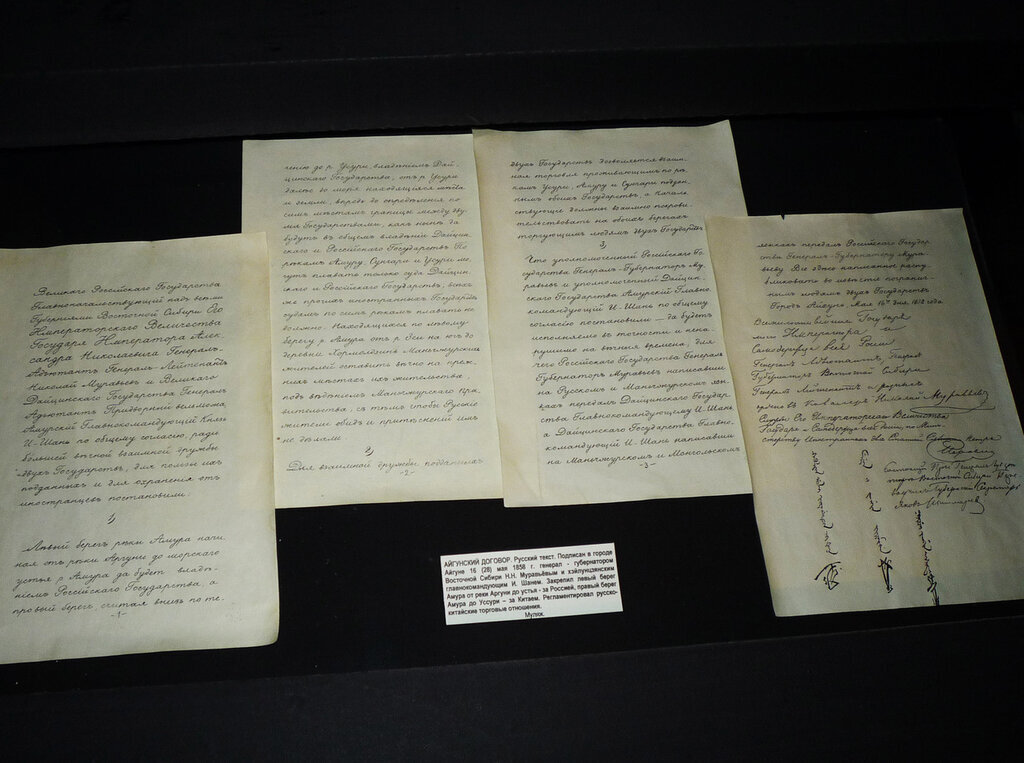 Великаго Россійскаго Государства
Главноначальствующій надъ всѣми
Губерніями Восточной Сибири Его
Императорскаго Величества
Государя Императора Алек-
сандра Николаевича Генералъ-
Адъютантъ Генералъ-Лейтенантъ
Николай Муравьевъ и Великаго
Дайцинскаго Государства Генералъ-
Адъютантъ Придворный вельможа
Амурскій Главнокомандующій Князь
И-Шань по общему согласію, ради
большей вѣчной взаимной дружбы
двухъ Государствъ, для пользы ихъ
подданныхъ и для охраненія отъ
иностранцевъ постановили:
1,
Лѣвый берегъ рѣки Амура начи-
ная отъ рѣки Аргуни до морскаго
устья р. Амура да будетъ владѣ-
ніемъ Россійскаго Государства, а
правый берегъ, считая внизъ по те-
-1-
ченію до р. Усури, владѣніемъ Дай-
цинскаго Государства; отъ р. Усури
далѣе до моря находящіяся мѣста
и земли, впредь до опредѣленія по
симъ мѣстамъ границы между дву-
мя Государствами, какъ нынѣ да
будутъ въ общемъ владѣніи Дайцин-
скаго и Россійскаго Государствъ. По
рѣкамъ Амуру, Сунгари и Усури мо-
гутъ плавать только суда Дайцин-
скаго и Россійскаго Государствъ; всѣхъ
же прочихъ иностранныхъ Государствъ
судамъ по симъ рѣкамъ плавать не
должно. Находящихся по лѣвому
берегу р. Амура отъ р. Зеи на югъ до
деревни Хормолдзинъ Маньчжурскихъ
жителей оставить вѣчно на преж-
нихъ мѣстахъ ихъ жительства
подъ вѣдѣніемъ Маньчжурскаго Пра-
вительства, съ тѣмъ чтобы Русскіе
жители обидъ и притѣсненій имъ
не дѣлали.
2,
Для взаимной дружбы подданныхъ
-2-
двухъ Государствъ дозволяется взаим-
ная торговля проживающимъ по рѣ-
камъ Усури, Амуру и Сунгари поддан-
нымъ обоихъ Государствъ, а началь-
ствующіе должны взаимно покрови-
тельствовать на обоихъ берегахъ
торгующимъ людямъ двухъ Государствъ
3,
Что уполномоченный Россійскаго Го-
сударства Генералъ-Губернаторъ Му-
равьевъ и уполномоченный Дайцин-
скаго Государства Амурскій Главно-
командующій И-Шань по общему
согласію постановили - да будетъ
исполняемо въ точности и нена-
рушимо на вѣчныя времена; для
чего Россійскаго Государства Генералъ
Губернаторъ Муравьевъ написавши
на Русскомъ и Маньчжурскомъ язы-
кахъ передалъ Дайцинскаго Государ-
ства Главнокомандующему И-Шань
а Дайцинскаго Государства Главно-
командующій И-Шань написавши
на Маньчжурскомъ и Монгольскомъ
-3-
языкахъ передалъ Россійскаго Государ-
ства Генералъ-Губернатору Мура-
вьеву. Все здѣсь написанное распу-
бликовать во извѣстіе погранич-
нымъ людямъ двухъ Государствъ
Городъ Айгунъ, Мая 16го дня, 1858 года
Всемилостивѣйшаго Государя
моего Императора и
Самодержца всея Россіи
Генералъ-Адъютантъ, Генералъ
Губернаторъ Восточной Сибири
Генералъ Лейтенантъ и разныхъ
орденовъ Кавалеръ Николай Муравьевъ
Службы Его Императорскаго Величества
Государя и Самодержца всея Россіи, по Мини-
стерству Иностранныхъ дѣлъ Статскій Совѣтникъ Петръ
Перовскій
состоящій при Генералъ-Губер-
наторѣ Восточной Сибири
Губернскій Секретарь
Яковъ Шишмаревъ
АЙГУНСКИЙ ДОГОВОР. Русский текст. Подписан в городе
Айгуне 16 (28) мая 1858 г. генерал - губернатором
Восточной Сибири Н.Н. Муравьёвым и хэйлунцзянским
главнокомандующим И. Шанем. Закрепил левый берег
Амура от реки Аргуни до устья - за Россией, правый берег
Амура до Уссури – за Китаем. Регламентировал русско-
китайские торговые отношения.
Муляж.